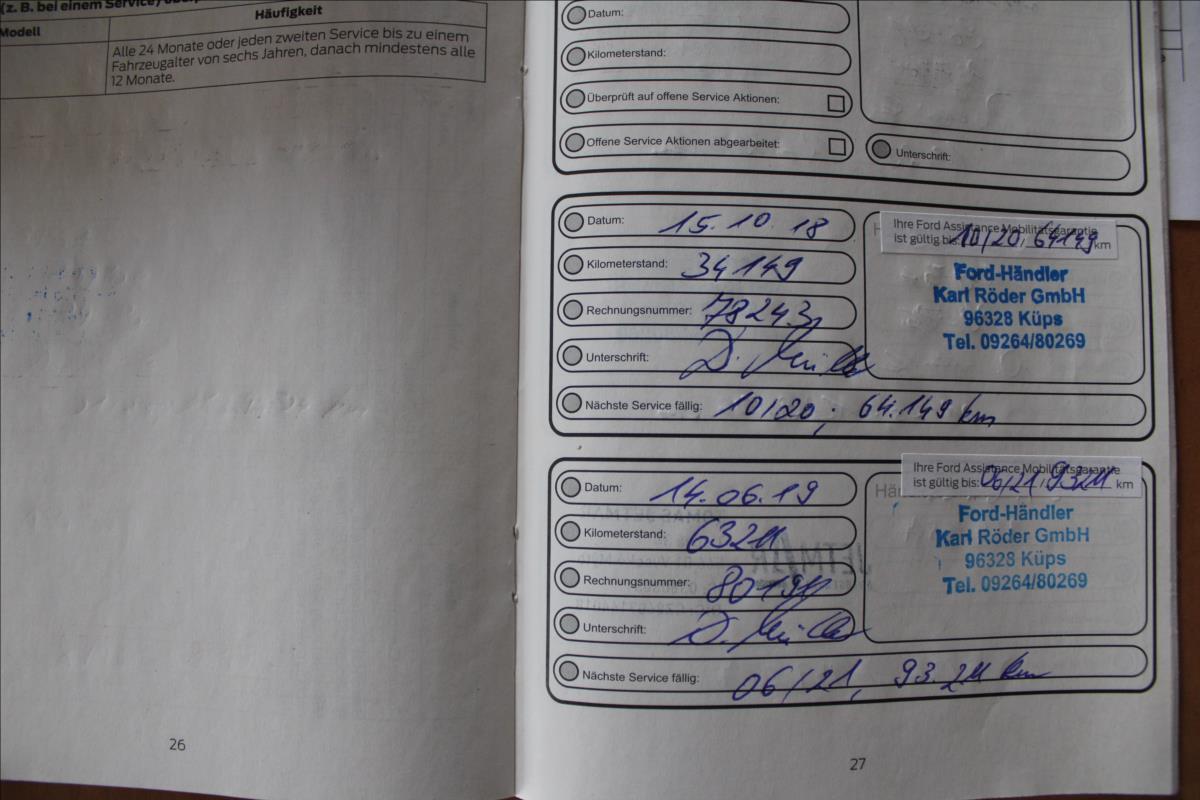 (z. B. bei einem Service)
Modell
Häufigkeit
Alle 24 Monate oder jeden zweiten Service bis zu einem
Fahrzeugalter von sechs Jahren, danach mindestens alle
12 Monate.
26
Datum:
Kilometerstand:
Überprüft auf offene Service Aktionen:
Offene Service Aktionen abgearbeitet:
Unterschrift:
Datum: 15.10.18
Kilometerstand: 34149
Rechnungsnummer: 78243
Unterschrift: D. Müller
Nächste Service fällig: 10/20, 64.149 km
Ihre Ford Assistance Mobilitätsgarantie
ist gültig bis: 10/20/64149 km
Ford-Händler
Karl Röder GmbH
96328 Küps
Tel. 09264/80269
Datum: 14.06.19
Kilometerstand: 63211
Rechnungsnummer:
Unterschrift: D. Müller
Nächste Service fällig: 06/21, 93.211 km
Ihre Ford Assistance Mobilitätsgarantie
ist gültig bis: 06/21/93211 km
Ford-Händler
Karl Röder GmbH
96328 Küps
Tel. 09264/80269
27